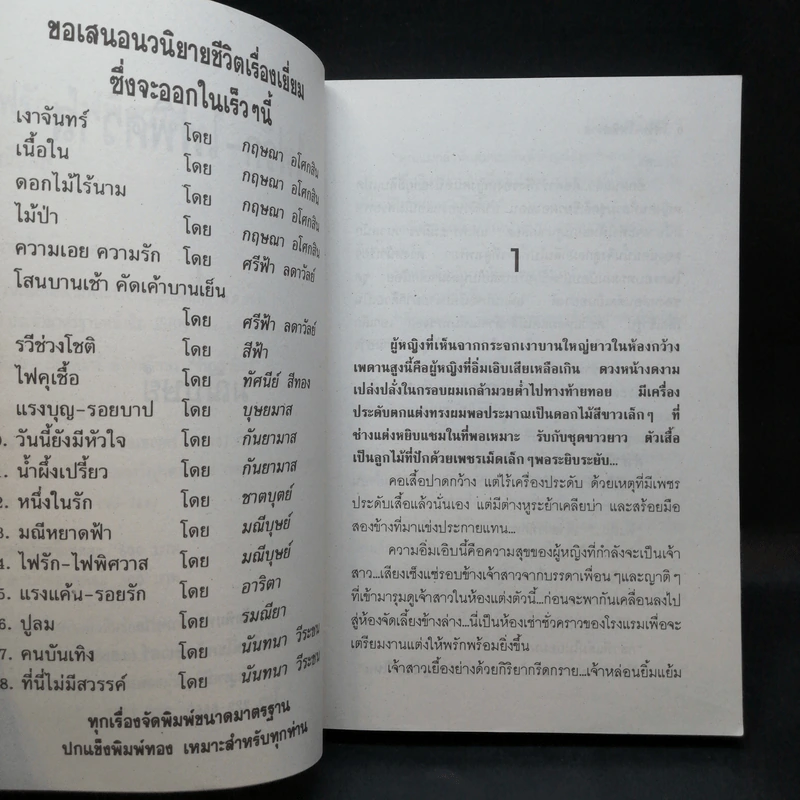 ขอเสนอนวนิยายชีวิตเรื่องเยี่ยม
ซึ่งจะออกในเร็วๆนี้
เงาจันทร์ โดย กฤษณา อโศกสิน
เนื้อใน โดย กฤษณา อโศกสิน
ดอกไม้ไร้นาม โดย กฤษณา อโศกสิน
ไม้ป่า โดย กฤษณา อโศกสิน
ความเอย ความรัก โดย ศรีฟ้า ลดาวัลย์
โสนบานเช้า คัดเค้าบานเย็น
โดย ศรีฟ้า ลดาวัลย์
รวีช่วงโชติ โดย สีฟ้า
ไฟคุเชื้อ โดย ทัศนีย์ สีทอง
แรงบุญ-รอยบาป โดย บุษยมาส
0. วันนี้ยังมีหัวใจ โดย กันยามาส
1. น้ำผึ้งเปรี้ยว โดย กันยามาส
2. หนึ่งในรัก โดย ชาตบุตย์
3. มณีหยาดฟ้า โดย มณีบุษย์
4. ไฟรัก-ไฟพิศวาส โดย มณีบุษย์
5. แรงแค้น-รอยรัก โดย อาริตา
6. ปูลม โดย รมณียา
7. คนบันเทิง โดย นันทนา วีระชน
8. ที่นี่ไม่มีสวรรค์ โดย นันทนา วีระชน
ทุกเรื่องจัดพิมพ์ขนาดมาตรฐาน
ปกแข็งพิมพ์ทอง เหมาะสำหรับทุกท่าน
1
ผู้หญิงที่เห็นจากกระจกเงาบานใหญ่ยาวในห้องกว้าง
เพดานสูงนี้คือผู้หญิงที่อิ่มเอิบเสียเหลือเกิน ดวงหน้างดงาม
เปล่งปลั่งในกรอบผมเกล้ามวยต่ำไปทางท้ายทอย มีเครื่อง
ประดับตกแต่งทรงผมพอประมาณเป็นดอกไม้สีขาวเล็กๆ ที่
ช่างแต่งหยิบแซมในที่พอเหมาะ รับกับชุดขาวยาว ตัวเสื้อ
เป็นลูกไม้ที่ปักด้วยเพชรเม็ดเล็กๆพอระยิบระยับ...
คอเสื้อปาดกว้าง แต่ไร้เครื่องประดับ ด้วยเหตุที่มีเพชร
ประดับเสื้อแล้วนั่นเอง แต่มีต่างหูระย้าเคลียบ่า และสร้อยมือ
สองข้างที่มาแข่งประกายแทน...
ความอิ่มเอิบนี้คือความสุขของผู้หญิงที่กำลังจะเป็นเจ้า
สาว...เสียงเซ็งแซ่รอบข้างเจ้าสาวจากบรรดาเพื่อนๆและญาติๆ
ที่เข้ามารุมดูเจ้าสาวในห้องแต่งตัวนี้...ก่อนจะพากันเคลื่อนลงไป
สู่ห้องจัดเลี้ยงข้างล่าง...นี่เป็นห้องเช่าชั่วคราวของโรงแรมเพื่อจะ
เตรียมงานแต่งให้พรักพร้อมยิ่งขึ้น
เจ้าสาวเยื้องย่างด้วยกิริยากรีดกราย...เจ้าหล่อนยิ้มแย้ม